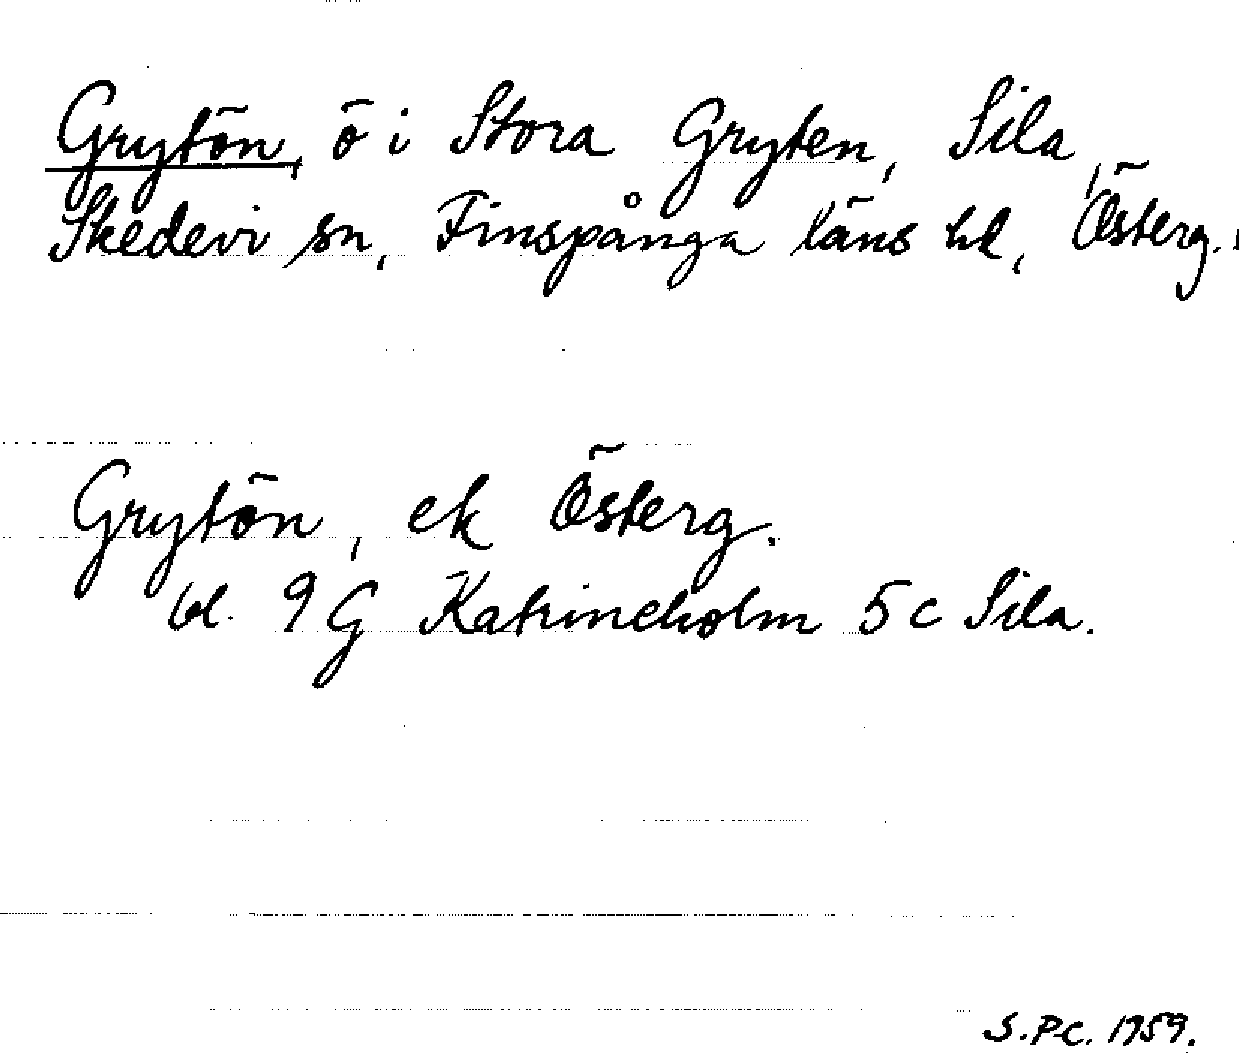 Grytön, ö i Stora Gryten, Sila,
Skedevi sn, Finspånga läns hd, Österg.
Grytön, ek Österg.
bl. 9G Katrineholm 5c Sila.
S.P-C. 1959.